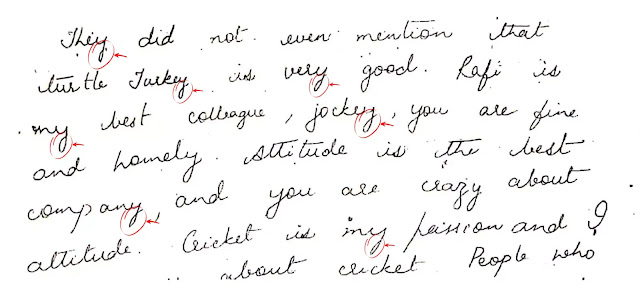 They did not even mention that
turtle Turkey is very good. Rafi is
my best colleague, jockey, you are fine
and homely. Attitude is the best
company, and you are crazy about
attitude. Cricket is my passion and I
about cricket. People who